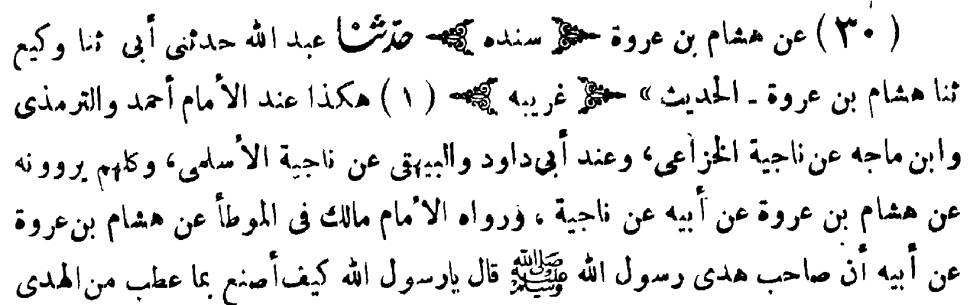 (٣٠) عن هشام بن عروة ﴿ سنده ﴾ حدثنا عبد الله حدثنى أبى ثنا وكيع
ثنا هشام بن عروة ـ الحديث » ﴿ غريبه ﴾ (١) هكذا عند الأمام أحمد والترمذى
وابن ماجه عن ناجية الخزاعى، وعند أبى داود والبيهقى عن ناجية الأسلمى، وكلهم يروونه
عن هشام بن عروة عن أبيه عن ناجية ، ورواه الأمام مالك فى الموطأ عن هشام بن عروة
عن أبيه أن صاحب هدى رسول الله ﷺ قال يارسول الله كيف أصنع بما عطب من الهدى